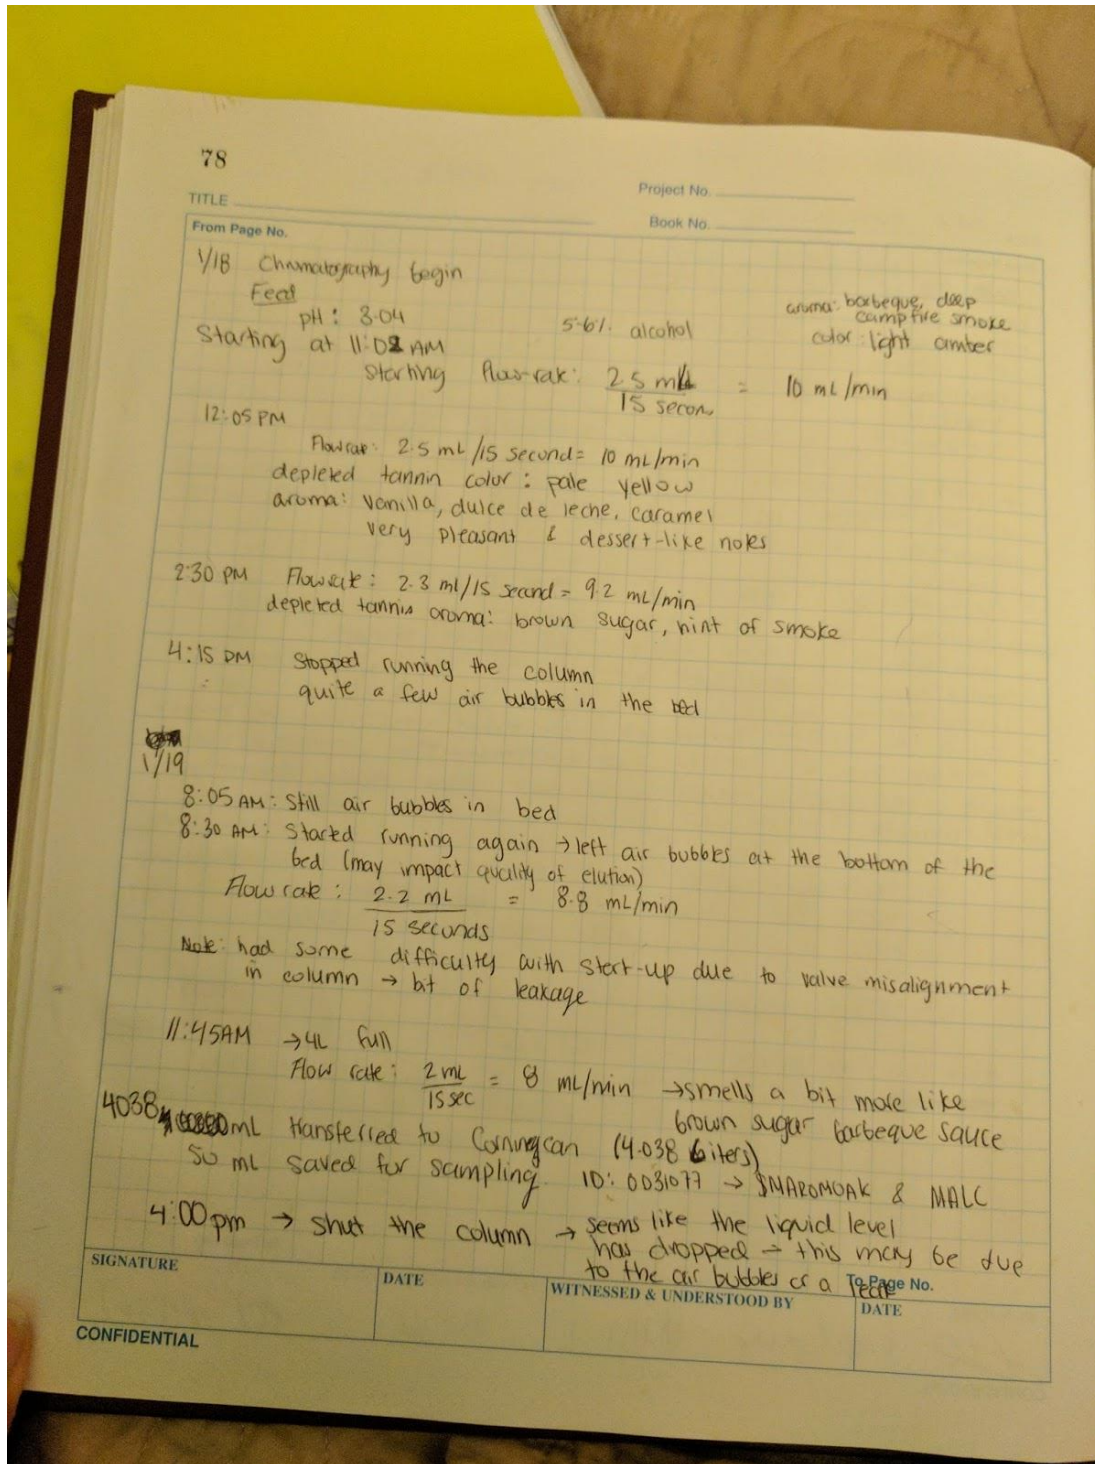 78
TITLE
Project No.
Book No.
From Page No.
1/18 Chromatography begin
Feed
pH: 3.04
5.6% alcohol
aroma: barbeque, deep
campfire smoke
color: light amber
Starting at 11:02 AM
starting flow-rate: 2.5 mL
15 secon
= 10 mL/min
12:05 PM
Flowrate: 2.5 mL/15 second = 10 mL/min
depleted tannin color: pale yellow
aroma: vanilla, dulce de leche, caramel
very pleasant & dessert-like notes
2:30 PM Flowrate: 2.3 ml/15 second = 9.2 mL/min
depleted tannin aroma: brown sugar, hint of smoke
4:15 PM Stopped running the column
quite a few air bubbles in the bed
1/19
8:05 AM: Still air bubbles in bed
8:30 AM: Started running again → left air bubbles at the bottom of the
bed (may impact quality of elution)
Flow rate: 2.2 mL
15 seconds
= 8.8 mL/min
Note: had some difficulty with start-up due to valve misalignment
in column → bit of leakage
11:45AM → 4L full
Flow rate: 2 mL
15 sec
= 8 mL/min → smells a bit more like
brown sugar barbeque sauce
4038 mL transferred to Corning can (4.038 liters)
50 mL saved for sampling. ID: 0031077 → & MALC
4:00 pm → shut the column → seems like the liquid level
has dropped → this may be due
to the air bubbles or a leak
To Page No.
SIGNATURE
DATE
WITNESSED & UNDERSTOOD BY
DATE
CONFIDENTIAL